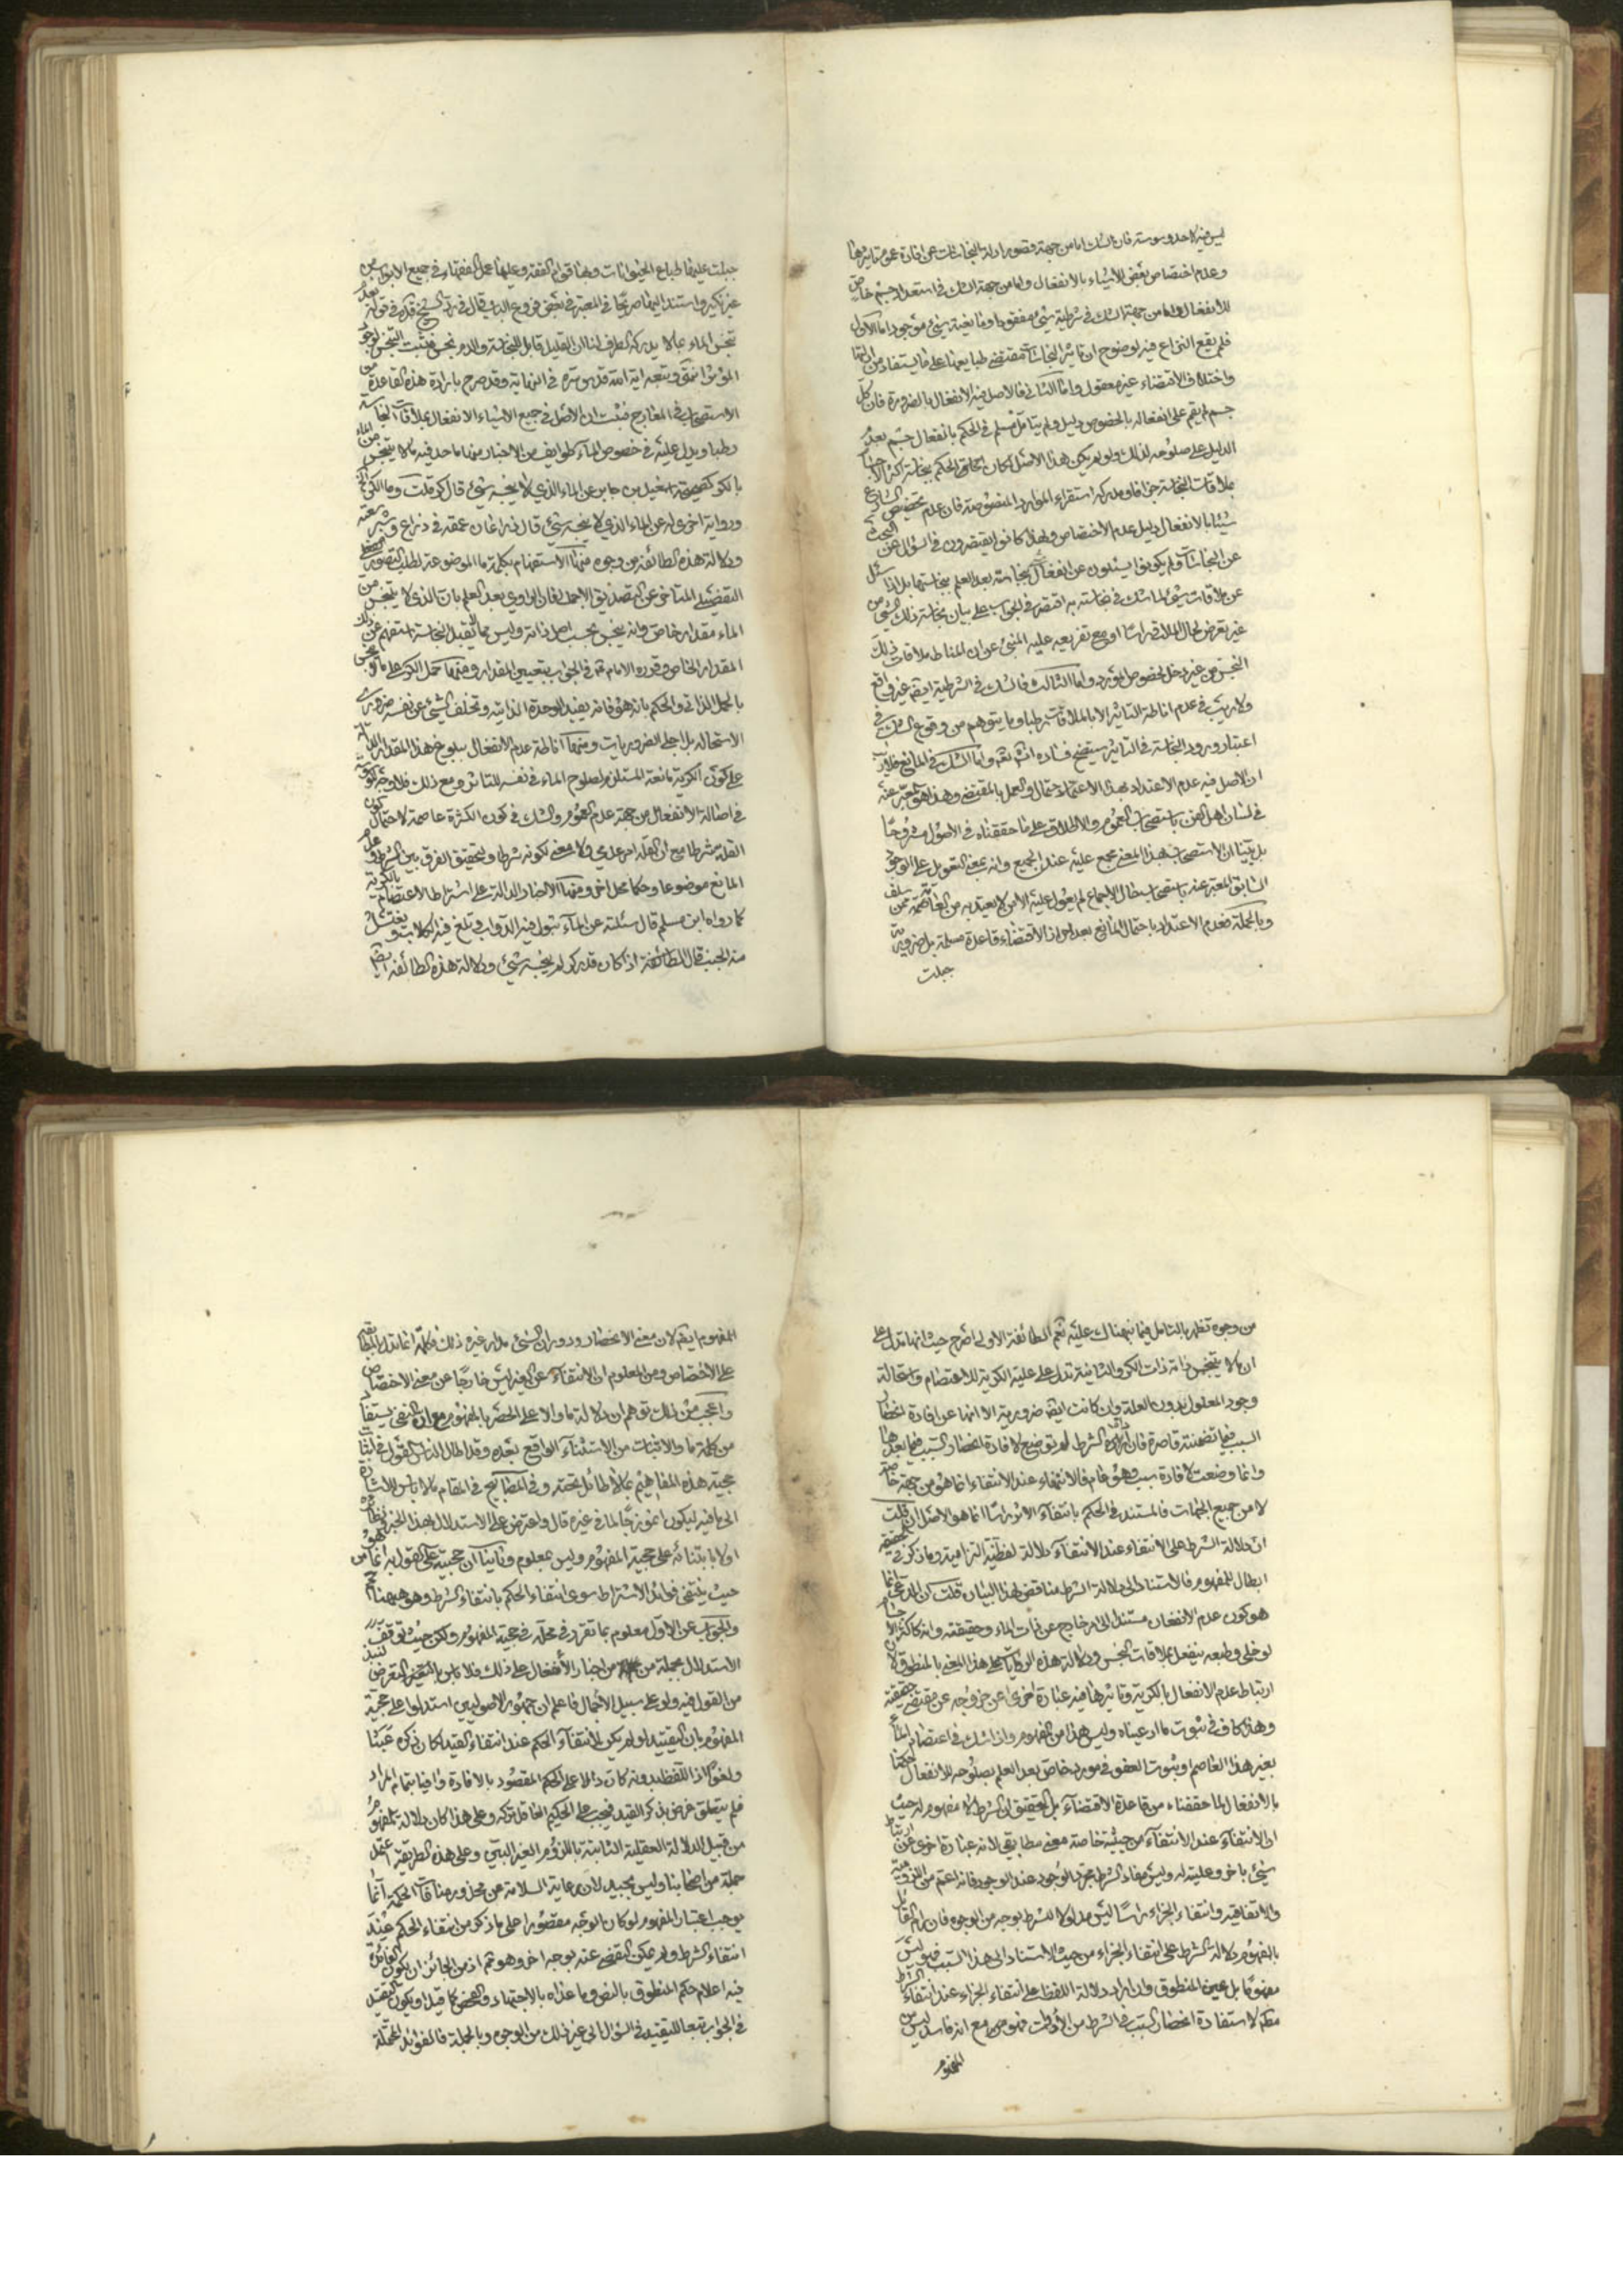 ليس فيه لاحد وسوسة فان الشك اما من جهة قصور ادلة النجاسات عن افادة عموم تاثيرها
وعدم اختصاص بعض الاشياء بالانفعال واما من جهة الشك في استعداد جسم خاص
للانفعال واما من جهة الشك في شرطية شيئ مفقود او مانعية شيئ موجود اما الاول
فلم يقع النزاع فيه لوضوح ان تاثير النجاسات مقتضى طبايعها على ما يستفاد من ادلتها
واختلاف الاقتضاء غير معقول واما الثاني فالاصل فيه الانفعال بالضرورة فان كل
جسم لم يقم على انفعاله بالخصوص دليل ولم يتامل مسلم في الحكم بانفعال جسم بعد
الدليل على صلوحه لذلك ولو لم يكن هذا الاصل لكان الحكم بنجاسة اكثر
بملاقات النجاسة جزافا ومدركه استقراء الموارد المنصوصة فان عدم تخصيص الشارع
شيئا بالانفعال دليل عدم الاختصاص ولهذا كانوا يقتصرون في السؤال عن البحث
عن النجاسات ولم يكونوا يسئلون عن انفعال بنجاسته بعد العلم بنجاستها بل اذا سئل
عن ملاقات شيئ لما شك في نجاسته اقتصر في الجواب على بيان نجاسة ذلك الشيئ من
غير تعرض لحال الملاقي راسا او مع تفريعه عليه المنبئ عن ان المناط ملاقات ذلك
النجس من غير دخل لخصوص المورد واما الثالث فالشك في الشرطية ايضا غير واقع
ولا ريب في عدم اناطة التاثير الا بالملاقات رطبا وما يتوهم من وقوع الشك في
اعتبار ورود النجاسة في التاثير سيتضح فساده انشاء الله واما الشك في المانع فلا ريب
ان الاصل فيه عدم الاعتداد بهذا الاحتمال والعمل بالمقتضي وهذا هو المعبر عنه
في لسان اهل الفن باستصحاب العموم والاطلاق على ما حققناه في الاصول مشروحا
بل بينا ان الاستصحاب بهذا المعنى مجمع عليه عند الجميع وانه بمعنى التعويل على الوجود
السابق المعبر عنه باستصحاب حال الاجماع لم يعول عليه الا من لا يعتد به من العامة ممن سلف
وبالجملة فعدم الاعتداد باحتمال المانع بعد احراز الاقتضاء قاعدة مسلمة بل ضرورية
جبلت
جبلت عليها طباع الحيوانات وبها قوام الفقه وعليها عمل الفقهاء في جميع الابواب من
غير نكير واستند اليها صريحا في المعتبر في بعض فروع الباب قال في رد الشيخ قده في قوله بعدم
تنجس الماء بما لا يدركه الطرف لنا ان القليل قابل للنجاسة والدم نجس فيثبت التنجس لوجود
المؤثر انتهى وتبعه اية الله قدس سره في النهاية وقد صرح بارادة هذه القاعدة من
الاستصحاب في المعارج فثبت ان الاصل في جميع الاشياء الانفعال بملاقات النجاسة
رطبا ويدل عليه في خصوص الماء طوايف من الاخبار منها ما حد فيه ما لا ينجس من الماء
بالكر كصحيحة اسمعيل بن جابر عن الماء الذي لا ينجسه شيئ قال كر قلت وما الكر
ورواية اخرى له عن الماء الذي لا ينجسه شيئ قال ذراعان عمقه في ذراع وشبر سعته
ودلالة هذه الطائفة من وجوه منها الاستفهام بكلمة ما الموضوعة لطلب التصور
التفصيلي المتاخر عن التصديق الاجمالي فان الراوي بعد العلم بان الذي لا ينجس من
الماء مقدار خاص وانه ينجس بحسب اصل ذاته وليس مما لا يقبل النجاسة استفهم عن ذلك
المقدار الخاص وقرره الامام ثم في الجواب بتعيين المقدار ومنها حمل الكر على ما لا ينجس
بالحمل الذاتي والحكم بانه هو فانه يفيد الوحدة الذاتية وتخلف الشيئ عن نفسه ضروري
الاستحالة بل اجلى الضروريات ومنها اناطة عدم الانفعال ببلوغ هذا المقدار
على كون الكرية مانعة المستلزم لصلوح الماء في نفسه للتاثر ومع ذلك فلا وجه
في اصالة الانفعال من جهة عدم العموم والشك في كون الكثرة عاصمة لاحتمال كون
القلة شرطا مع ان القلة امر عدمي ولا معنى لكونه شرطا وتحقيق الفرق بين الشرط وعدم
المانع موضوعا وحكما محل اخر ومنها الاخبار الدالة على اشتراط الاعتصام بالكرية
كما رواه ابن مسلم قال سئلته عن الماء تبول فيه الدواب وتلغ فيه الكلاب ويغتسل
منه الجنب قال اذا كان قدر كر لم ينجسه شيئ ودلالة هذه الطائفة ايضا
من وجوه تظهر بالتامل فيما نبهناك عليه نعم الطائفة الاولى اصرح حيث انها تدل على
ان ما لا ينجس ذاته ذات الكر والثانية تدل على علية الكرية للاعتصام واستحالة
وجود المعلول بدون العلة وان كانت ايضا ضرورية الا انها عن افادة انحصار
السبب فيما تضمنته قاصرة فان اداة الشرط لم توضع لافادة انحصار السبب فيما بعدها
وانما وضعت لافادة سببيته وهو عام فالانتفاء عند الانتفاء انما هو من جهة خاصة
لا من جميع الجهات فالمستند في الحكم بانتفاء الاثر راسا انما هو الاصل ان قلت
ان دلالة الشرط على الانتفاء عند الانتفاء دلالة لفظية التزامية وما ذكر في الحقيقة
ابطال للمفهوم فالاستناد الى دلالة الشرط مناقض لهذا البيان قلت ان المدعى انما
هو كون عدم الانفعال مستندا الى امر خارج عن ذات الماء وحقيقته وانه كاكثر الاجسام
لو خلي وطبعه ينفعل بملاقات النجس ودلالة هذه الروايات على هذا المعنى بالمنطوق لان
ارتباط عدم الانفعال بالكرية وتاثيرها فيه عبارة اخرى عن خروجه عن مقتضى حقيقته
وهذا كاف في ثبوت ما ادعيناه وليس هذا من المفهوم واذا شك في اعتصام الماء
بغير هذا العاصم او ثبوت العفو في مورد خاص بعد العلم بصلوحه للانفعال حكمنا
بالانفعال لما حققناه من قاعدة الاقتضاء بل التحقيق ان الشرط لا مفهوم له حيث
ان الانتفاء عند الانتفاء من حيثية خاصة معنى مطابقي لانه عبارة اخرى عن ارتباط
شيئ باخر وعليته له وليس مفاد الشرط مجرد الوجود عند الوجود فانه اعم من اللزومية
والاتفاقية وانتفاء الجزاء راسا ليس مدلولا للشرط بوجه من الوجوه فان اراد القائل
بالمفهوم دلالة الشرط على انتفاء الجزاء من حيث الاستناد الى هذا السبب فهو ليس
مفهوما بل عين المنطوق وان اراد دلالة اللفظ على انتفاء الجزاء عند انتفاء الشرط
مطلقا لاستفادة انحصار السبب في الشرط من الأداة فهو مع انه فاسد ليس من
المفهوم
المفهوم ايضا لان معنى الانحصار ودوران الشيئ مدار غيره ذلك وكلمة انما تدل بالمطابقة
على الاختصاص ومن المعلوم ان الانتفاء عن الغير ليس خارجا عن معنى الاختصاص
واعجب من ذلك توهم ان دلالة ما والا على الحصر بالمفهوم مع ان النفي يستفاد
من كلمة ما والاثبات من الاستثناء الواقع بعده وقد اطال الناس القول في اثبات
حجية هذه المفاهيم بما لا طائل تحته وفي المصابيح في المقام ما لا باس للاشارة
الى ما فيه ليكون انموزجا لما في غيره قال واعترض على الاستدلال بهذا الخبر
اولا بابتنائه على حجية المفهوم وليس بمعلوم وثانيا ان حجيته على القول به انما هو
حيث ينتفي فوائد الاشتراط سوى انتفاء الحكم بانتفاء الشرط وهو هيهنا
والجواب عن الاول معلوم بما تقرر في محله في حجية المفهوم ولكن حيث توقف
الاستدلال بجملة من اخبار الأنفعال على ذلك فلا باس بالتعرض لنبذ
من القول فيه ولو على سبيل الاجمال فاعلم ان جمهور الاصوليين استدلوا على حجية
المفهوم بان التقييد لو لم يكن لانتفاء الحكم عند انتفاء القيد لكان ذكره عبثا
ولغوا اذ اللفظ بدونه كان دالا على الحكم المقصود بالافادة وافيا بتمام المراد
فلم يتعلق غرض بذكر القيد فيجب على الحكيم العاقل تركه وعلى هذا كان دلالة المفهوم
من قبيل الدلالة العقلية الثابتة باللزوم الغير البين وعلى هذه الطريقة اعتمد
جملة من اصحابنا وليس بجيد لان رعاية السلامة من محذور منافات الحكمة انما
يوجب اعتبار المفهوم لو كان الوجه مقصورا على ما ذكر من انتفاء الحكم عند
انتفاء الشرط ولم يمكن التفصي عنه بوجه اخر وهو ثم اذ من الجائز ان يكون الفائدة
فيه اعلام حكم المنطوق بالنص وما عداه بالاجتهاد والفحص كما قيل او يكون التقييد
في الجواب تبعا للتقييد في السؤال الى غير ذلك من الوجوه وبالجملة فالفوائد المحتملة